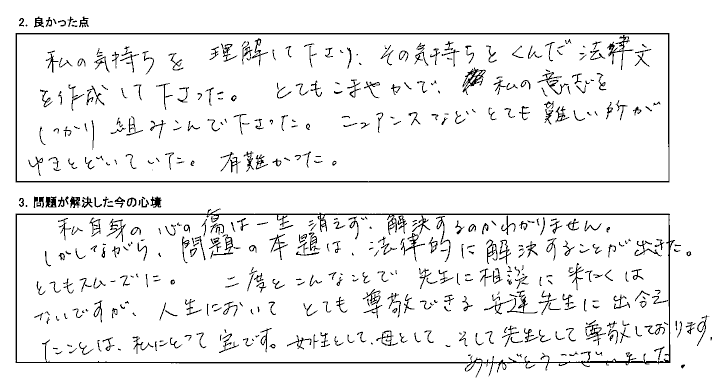 2. 良かった点
私の気持ちを 理解して下さり、その気持ちをくんだ法律文
を作成して下さった。 とてもこまやかで、私の意志を
しっかり組みこんで下さった。ニュアンスなどとても難しい所が
ゆきとどいていた。 有難かった。
3. 問題が解決した今の心境
私自身の心の傷は一生 消えず、解決するのかわかりません。
しかしながら、問題の本題は、法律的に解決することが出きた。
とてもスムーズに。 二度とこんなことで 先生に相談に来たくは
ないですが、人生において とても尊敬できる 安達先生に出合え
たことは、私にとって宝です。女性として、母として、そして先生として尊敬しております。
ありがとうございました。